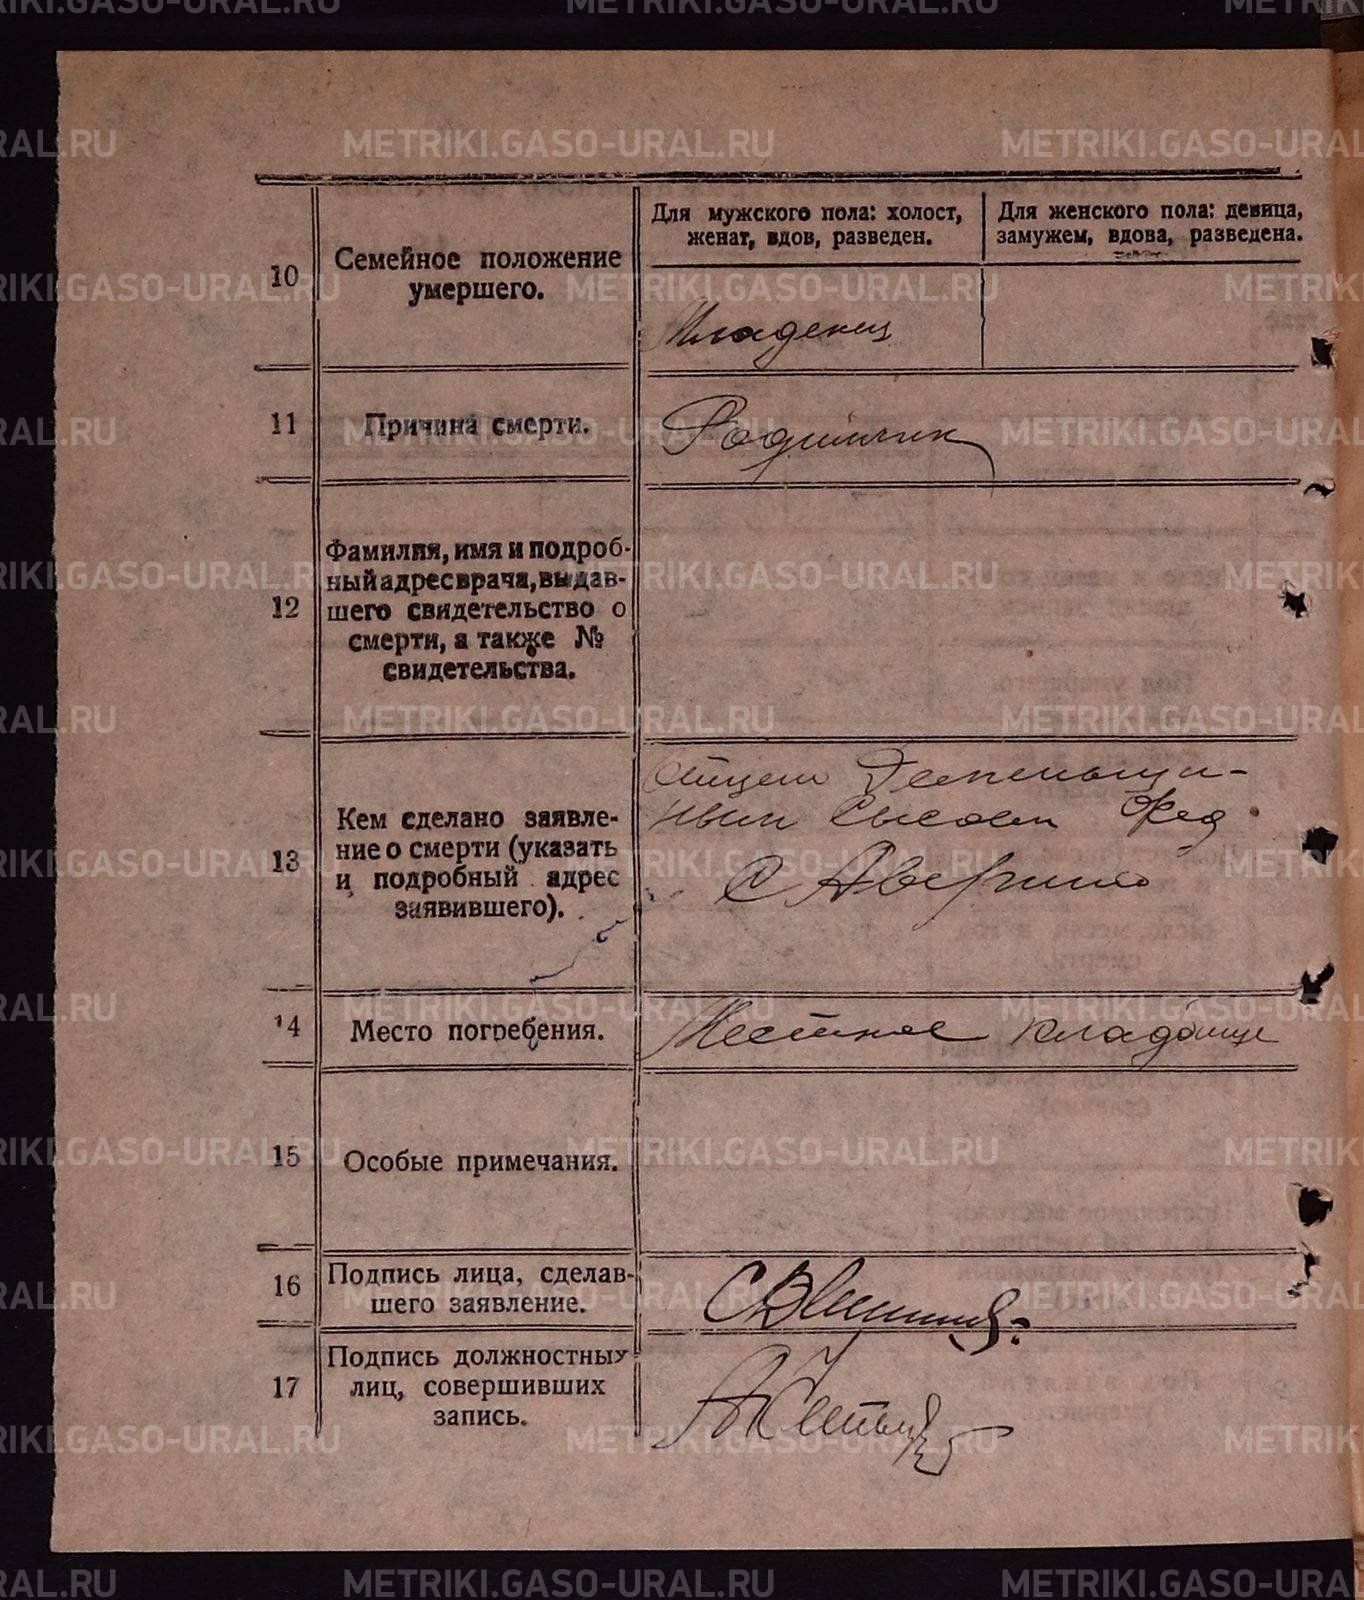 METRIKI.GASO-URAL.RU
Для мужского пола: холост, женат, вдов, разведен.
Для женского пола: девица, замужем, вдова, разведена.
10
Семейное положение
умершего.
Младенец
11
Причина смерти.
Родимчик
12
Фамилия, имя и подроб-
ный адрес врача, выдав-
шего свидетельство о
смерти, а также №
свидетельства.
13
Кем сделано заявле-
ние о смерти (указать
и подробный адрес
заявившего).
Отцем
ным Сысоем Фед
С Аверино
14
Место погребения.
Местное кладбище
15
Особые примечания.
16
Подпись лица, сделав-
шего заявление.
17
Подпись должностных
лиц, совершивших
запись.